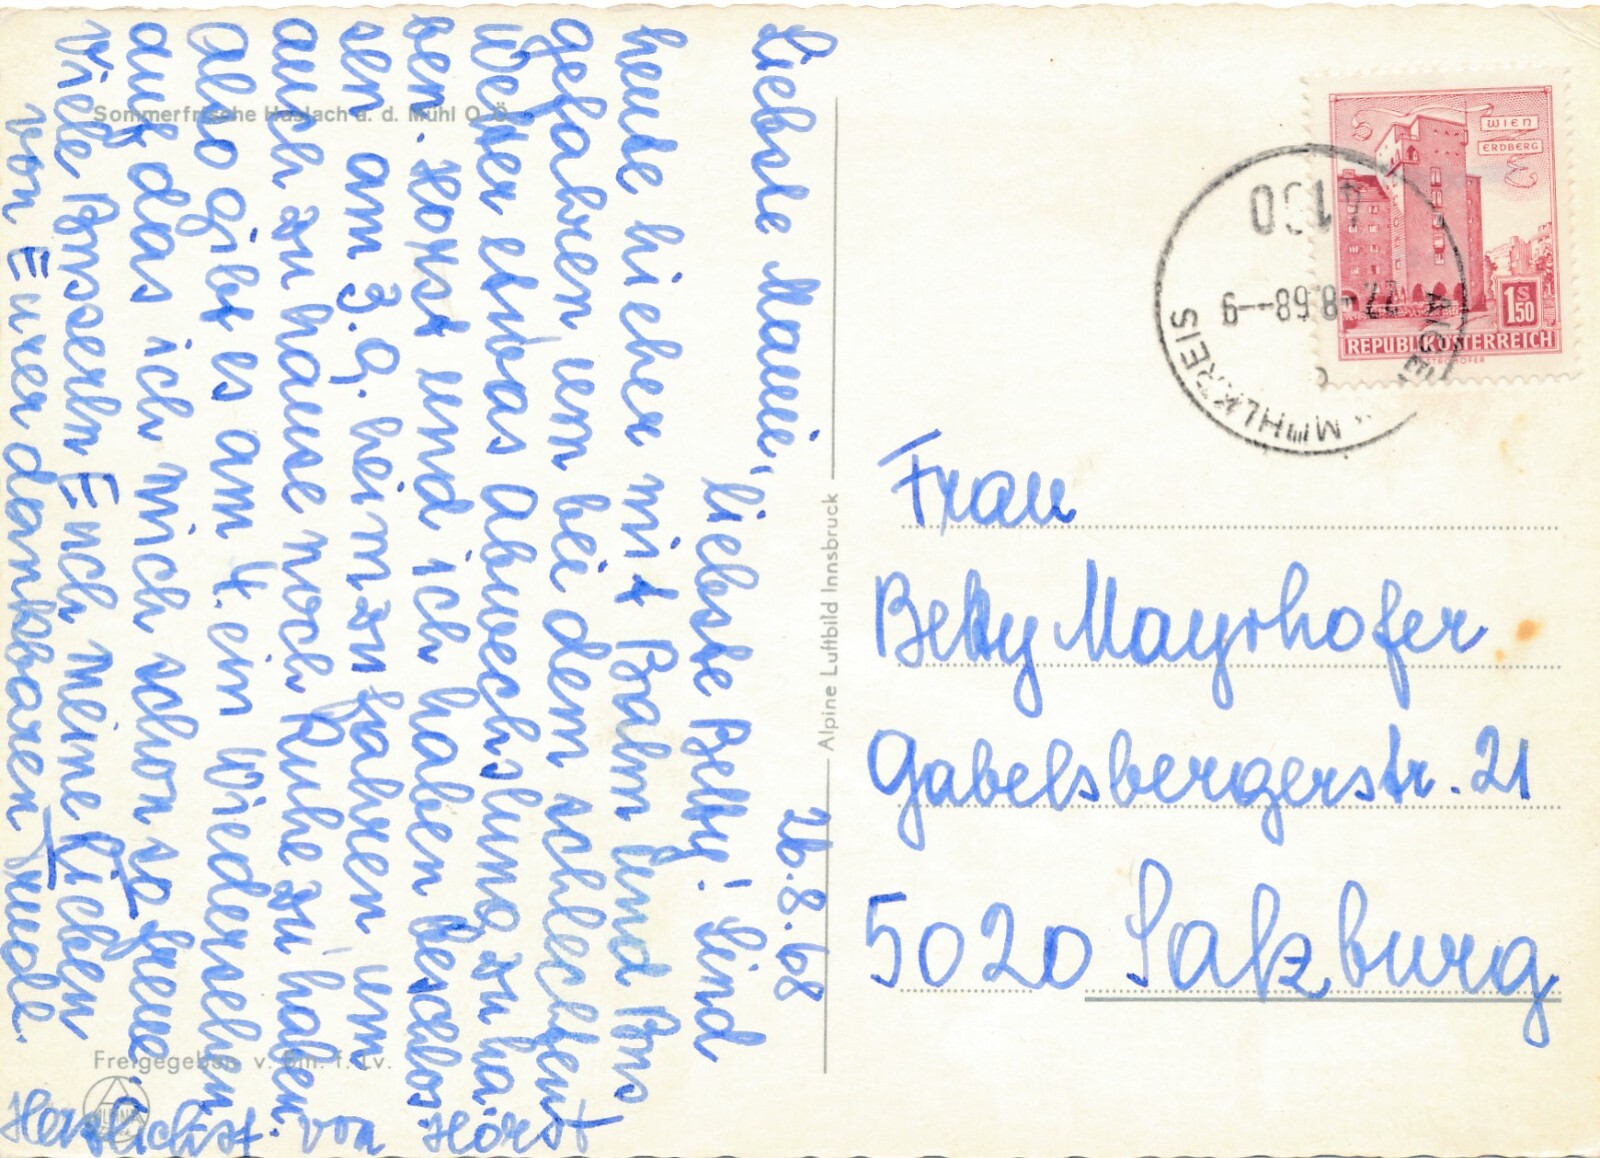 Sommerfrische Haslach a. d. Mühl O.Ö.
26.8.68
Liebste Mami,
liebste Betty! Sind
heute hieher mit Bahm und Bus
gefahren um bei dem schlechten
Wetter etwas Abwechslung zu ha-
ben. Horst und ich haben beschlos-
sen am 3.9. heimzufahren um
auch zu hause noch Ruhe zu haben.
Also gibt es am 4. ein Wiedersehen
auf das ich mich schon so freue.
Viele Busserln Euch meine Lieben
von Eurer dankbaren Trudl.
Herzlichst von Horst
Freigegeben v. Bm. f. Lv.
ALPINE
Alpine Luftbild Innsbruck
WIEN
ERDBERG
1 S 50
REPUBLIK ÖSTERREICH
4190
27.-8.68--9
MÜHLKREIS
Frau
Betty Mayrhofer
Gabelsbergerstr. 21
5020 Salzburg